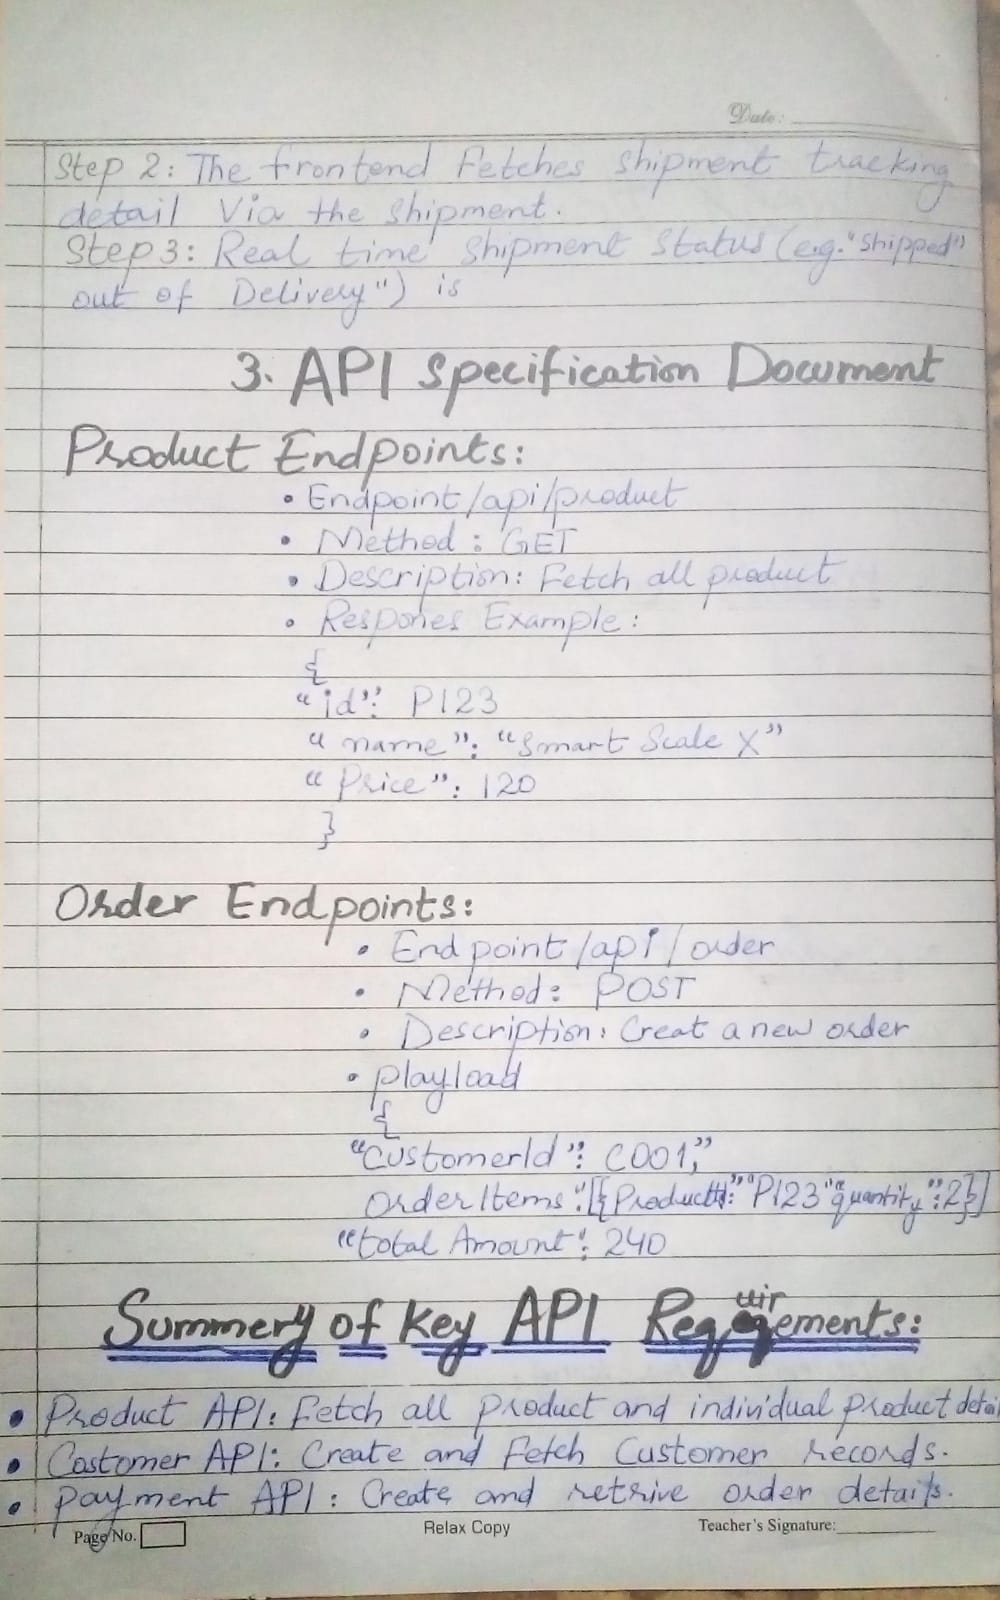 Date:
Step 2: The frontend Fetches shipment tracking
detail Via the shipment.
Step 3: Real time shipment Status (e.g. "Shipped"
out of Delivery") is
3. API Specification Document
Product Endpoints:
• Endpoint/api/product
• Method: GET
• Description: Fetch all product
• Respones Example:
{
"id": P123
"name": "Smart Scale X"
"Price": 120
}
Order Endpoints:
• Endpoint/api/order
• Method: POST
• Description: Creat a new order
• playload
{
"CustomerId": C001,"
OrderItems":[{ProductId:" "P123 "quantity":2}]
"total Amount": 240
Summery of Key API Requirements:
• Product API: Fetch all product and individual product detail
• Costomer API: Create and Fetch Customer records.
• Payment API: Create and retrive order details.
Page No.
Relax Copy
Teacher's Signature: